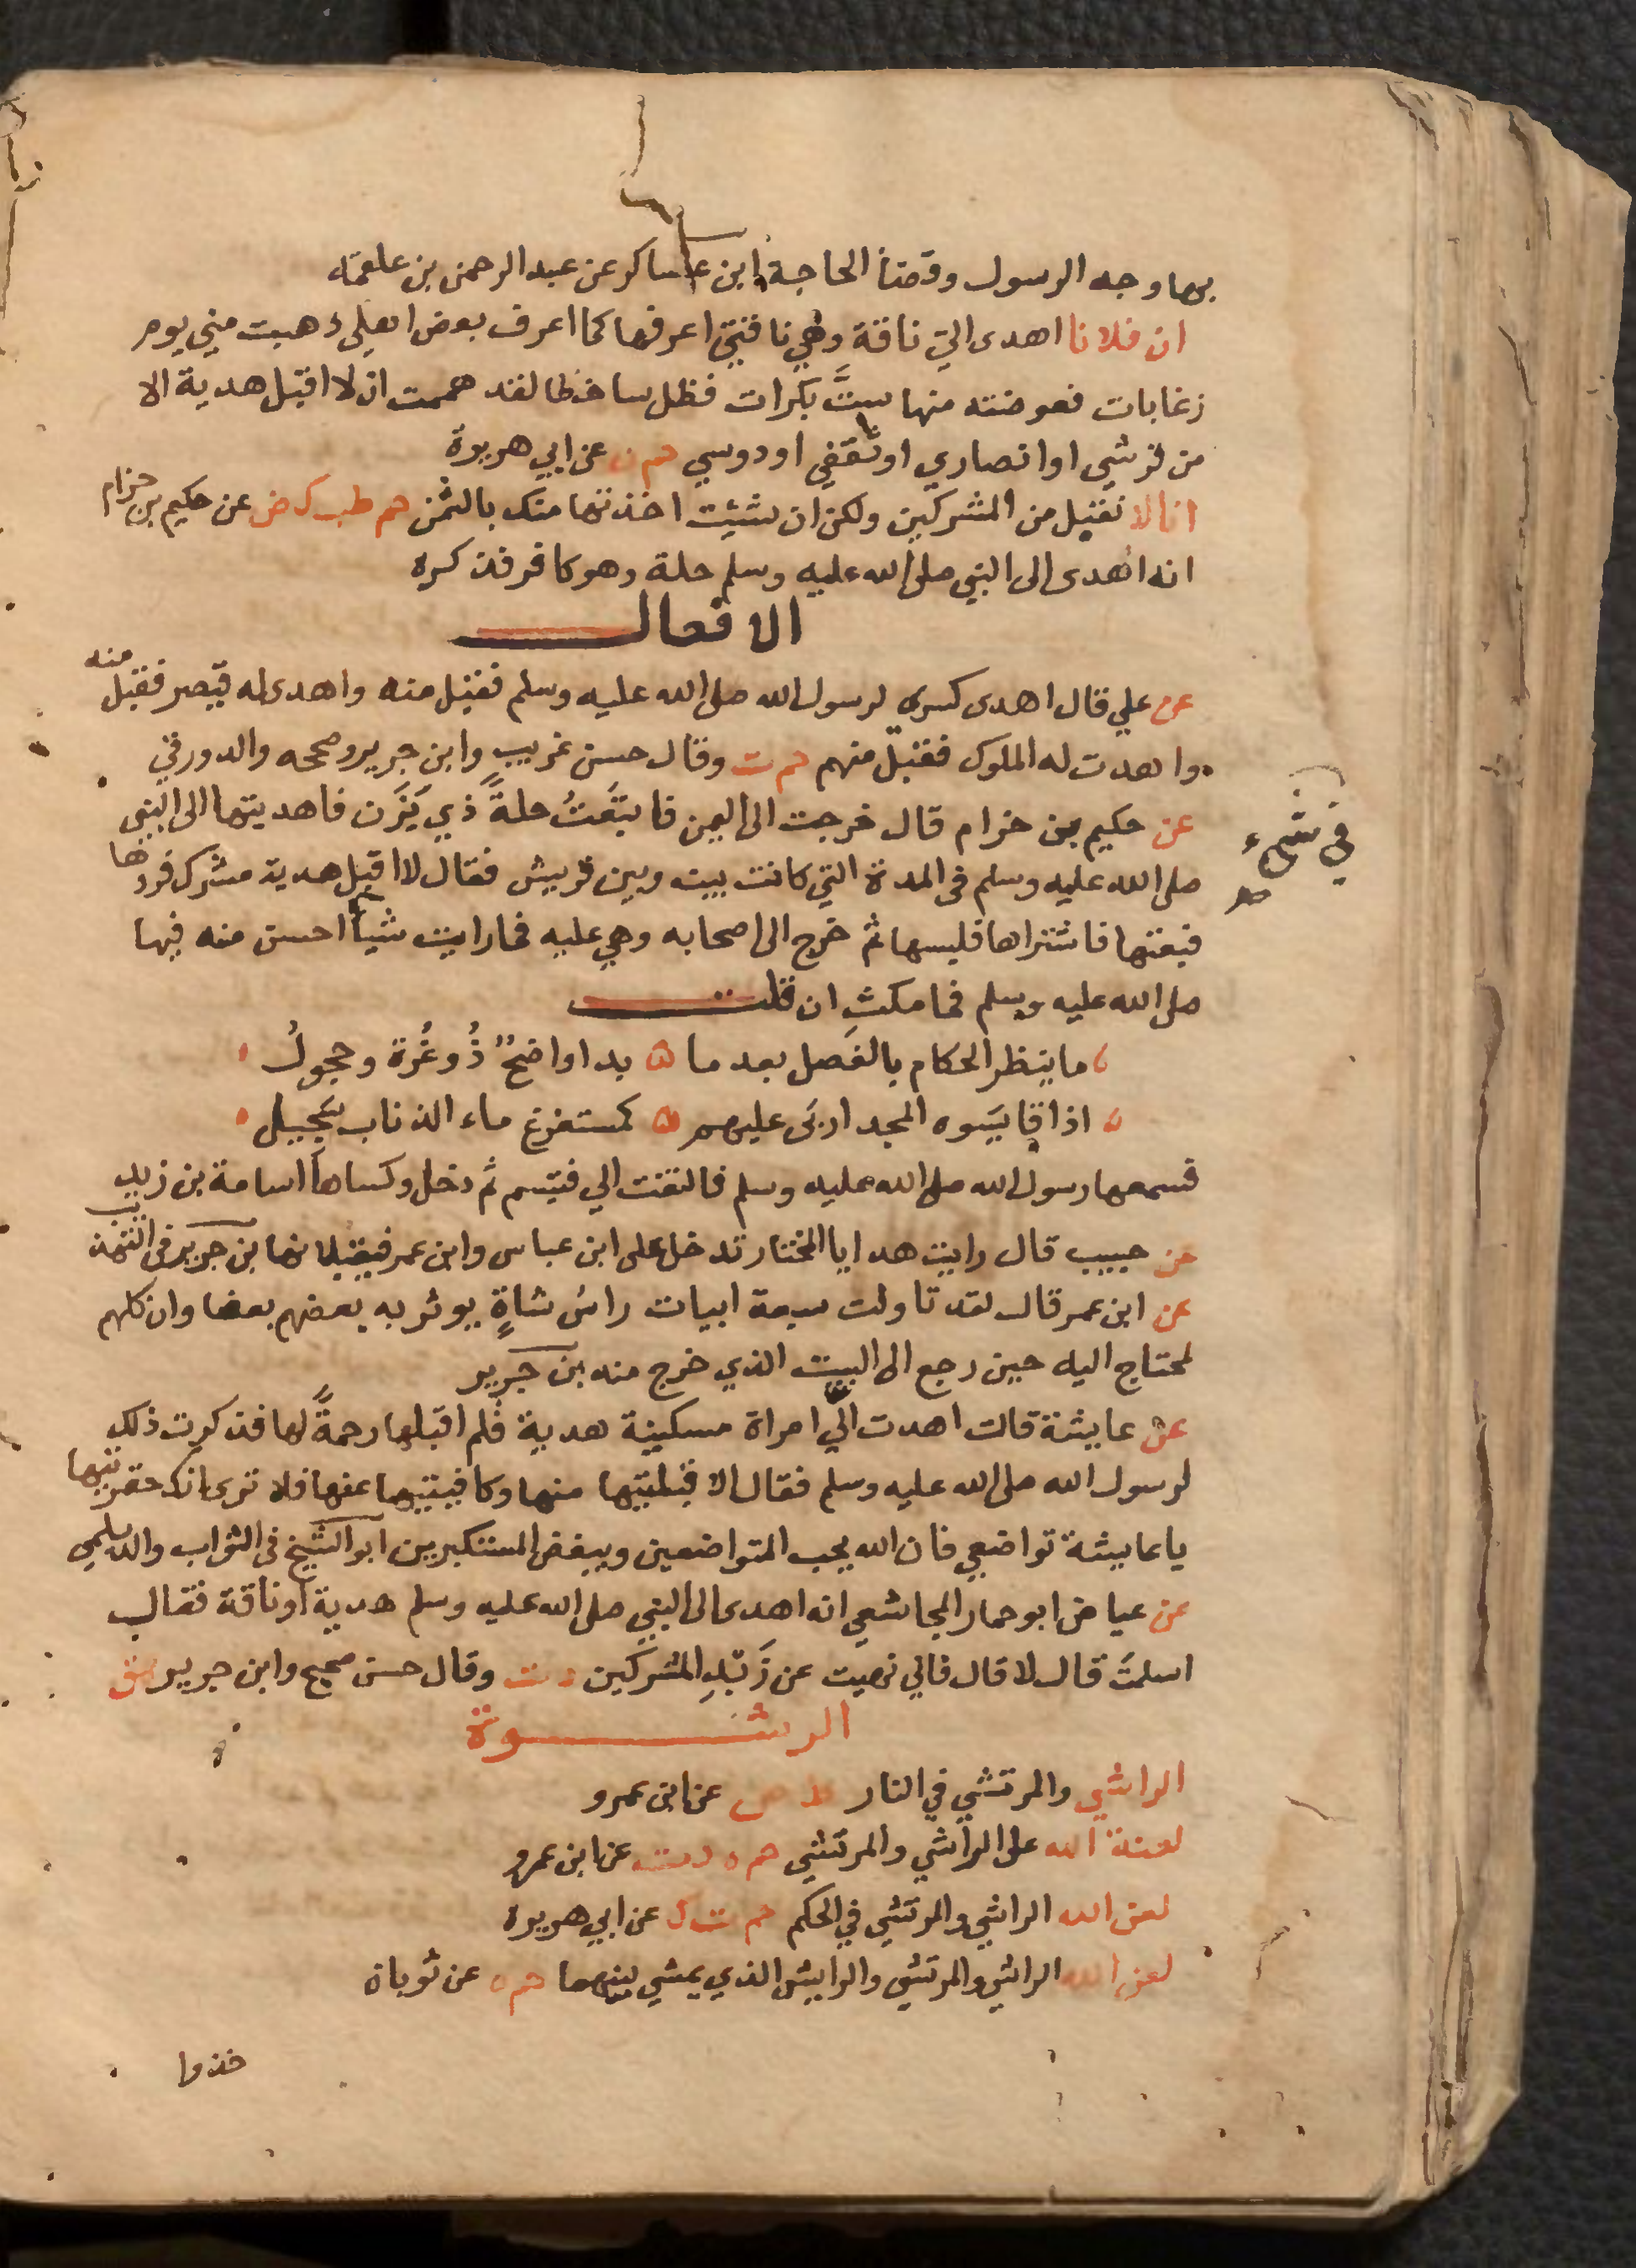 بها وجه الرسول وقضا الحاجة ابن عساكر عن عبد الرحمن بن علقمة
ان فلانا اهدى الي ناقة وهي ناقتي اعرفها كما اعرف بعض اهلي ذهبت مني يوم
زغابات فعوضته منها ستَّ بكرات فظل ساخطا لقد هممت ان لا اقبل هدية الا
من قرشي او انصاري او ثقفي او دوسي حم ت عن ابي هريرة
انا لا نقبل من المشركين ولكن ان شئت اخذتها منك بالثمن حم طب ك ض عن حكيم بن حزام
انه اهدى الى النبي صلى الله عليه وسلم حلة وهو كافر فذكره
الافعال
عن علي قال اهدى كسرى لرسول الله صلى الله عليه وسلم فقبل منه واهدى له قيصر فقبل منه
واهدت له الملوك فقبل منهم حم ت وقال حسن غريب وابن جرير وصححه والدورقي
عن حكيم بن حزام قال خرجت الى اليمن فابتعتُ حلةً ذي يَزَن فاهديتها الى النبي
صلى الله عليه وسلم في المدة التي كانت بينه وبين قريش فقال لا اقبل هدية مشرك فردها
في شيء
فبعتها فاشتراها فلبسها ثم خرج الى اصحابه وهي عليه فما رايت شيأ احسن منه فيها
صلى الله عليه وسلم فما مكث ان قلت
ما ينظر الحكام بالفصل بعد ما ۵ بدا واضحٌ ذُو غُرة وحجولُ
اذا قايسوه المجد اربَى عليهم ۵ كمستفرغ ماء الذناب سجيل
فسمعها رسول الله صلى الله عليه وسلم فالتفت الي فتبسم ثم دخل وكساها اسامة بن زيد
عن حبيب قال رايت هدايا المختار تدخل على ابن عباس وابن عمر فيقبلانها بن جرير في التهذيب
عن ابن عمر قال لقد تاولت سبعة ابيات راسُ شاةٍ يوثر به بعضهم بعضا وان كلهم
لمحتاج اليه حين رجع الى البيت الذي خرج منه بن جرير
عن عايشة قالت اهدت الي امراة مسكينة هدية فلم اقبلها رحمةً لها فذكرت ذلك
لرسول الله صلى الله عليه وسلم فقال الا قبلتيها منها وكافيتيها عنها فلا ترى انك حقرتيها
يا عايشة تواضعي فان الله يحب المتواضعين ويبغض المستكبرين ابو الشيخ في الثواب والديلمي
عن عياض ابو حمار المجاشعي انه اهدى الى النبي صلى الله عليه وسلم هدية او ناقة فقال
اسلمتَ قال لا قال فاني نهيت عن زَبْدِ المشركين د ت وقال حسن صحيح وابن جرير هق
الرشوة
الراشي والمرتشي في النار ط ص عن ابن عمرو
لعنة الله على الراشي والمرتشي حم ه د ت عن ابن عمرو
لعن الله الراشي والمرتشي في الحكم حم ت ك عن ابي هريرة
لعن الله الراشي والمرتشي والرايش الذي يمشي بينهما حم ه عن ثوبان
خذوا